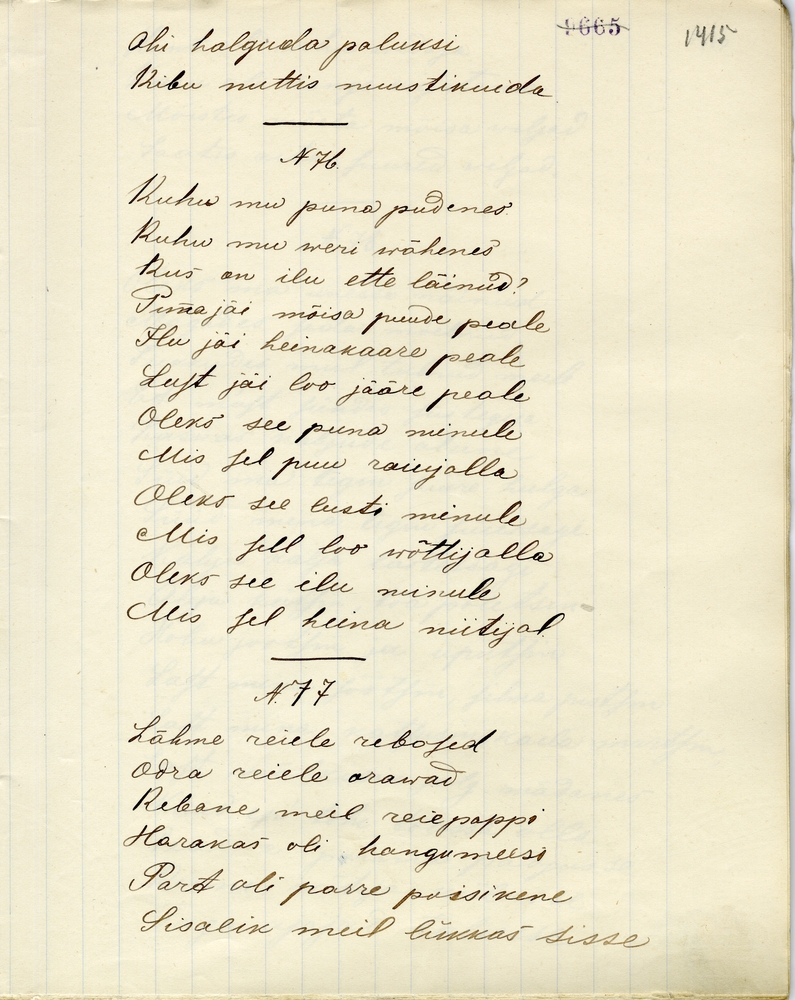 9665
1415
Ahi halguda paluksi
Kibu nuttis nuustikuida
N 76.
Kuhu mu puna pudenes
Kuhu mu weri wähenes
Kus on ilu ette läinud?
Puna jäi mõisa puude peale
Ilu jäi heinakaare peale
Lust jäi loo jääre peale
Oleks see puna minule
Mis sel puu raiujalla
Oleks see lusti minule
Mis sell loo wõttijalla
Oleks see ilu minule
Mis sel heina niitijal
N. 77
Lähme reiele rebosed
Odra reiele orawad
Rebane meil reiepappi
Harakas oli hangumeesi
Part oli parre poisikene
Sisalik meil lükkas sisse